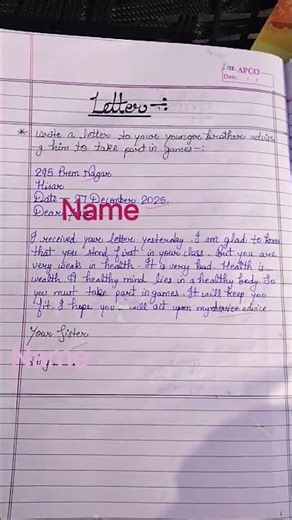 APCO
Date:
Letter :-
* Write a letter to your younger brother advisin
g him to take part in games -:
295 Prem Nagar
Hisar
Date - 27 December 2025.
Dear
Name
I received your letter yesterday. I am glad to know
that you stood first in your class. But you are
very weak in health. It is very bad. Health is
wealth. A healthy mind lies in a healthy body. So
you must take part in games. It will keep you
fit. I hope you will act upon my advice
Your Sister
Name